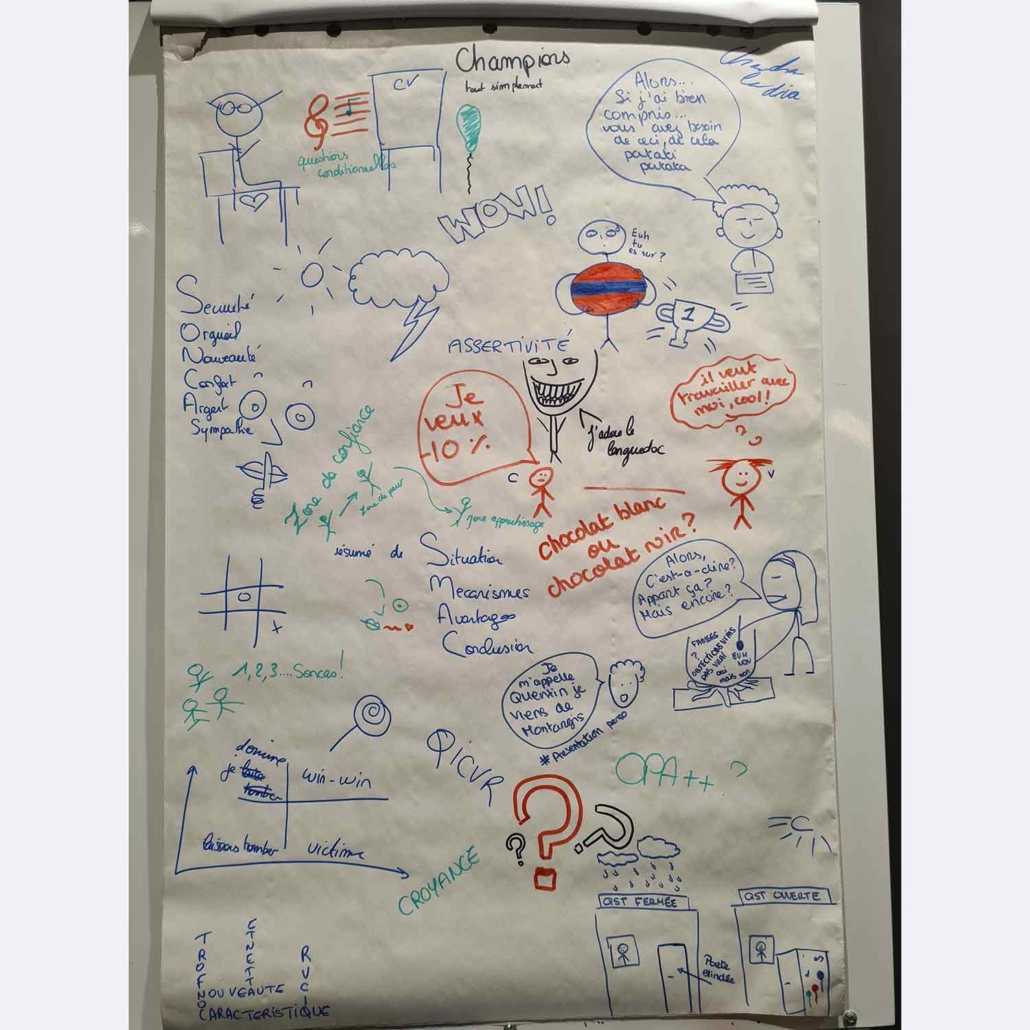 Champions
tout simplement
CV
questions
conditionnelles
Alors...
Si j'ai bien
compris...
vous avez besoin
de ceci, de cela
patati
patata
WOW!
Euh
tu
es sur?
1
Securité
Orgueil
Nouveauté
Confort
Argent
Sympathie
ASSERTIVITÉ
Je
veux
-10%
J'adore le
languedoc
il veut
travailler avec
moi, cool!
C
V
Zone de confiance
Zone de peur
zone apprentissage
chocolat blanc
ou
chocolat noir?
résumé de
Situation
Mecanismes
Avantages
Conclusion
Alors,
C'est-a-dire?
Appart ça?
Mais encore?
FAUSSES
?
OBJECTIONS VRAIS
PAS VRAI
OUI
MAIS NON
EUH
NON
1,2,3....Sonces!
Je
m'appelle
Quentin je
viens de
Montargis
#Presentation perso
QICVR
OPA++ ?
domine
je
win-win
laissons tomber
victime
CROYANCE
???
QST FERMÉE
QST OUVERTE
Porte
blindée
NOUVEAUTE
CARACTERISTIQUE